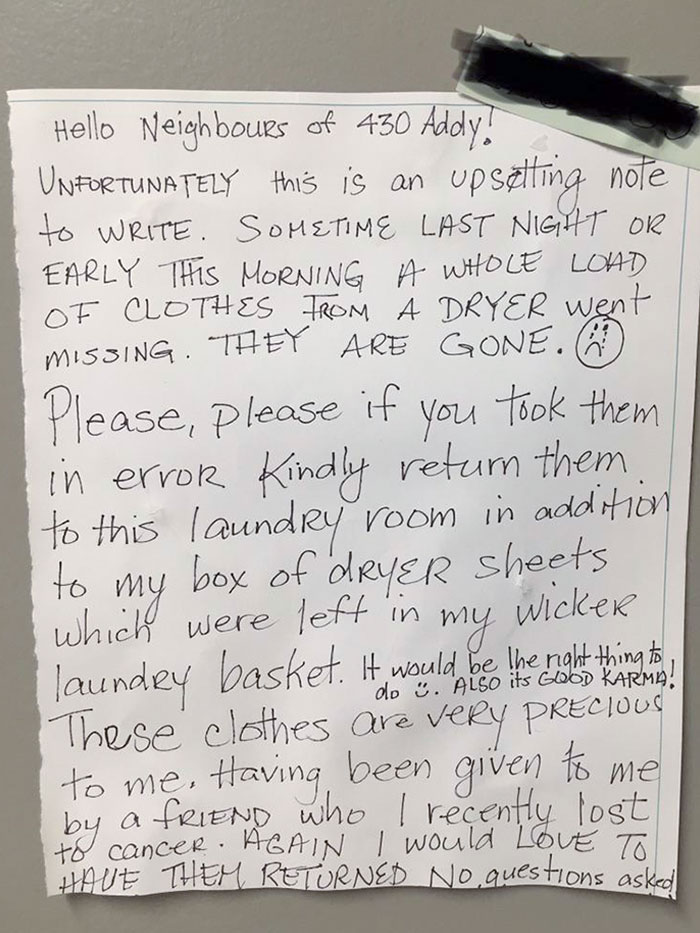 Hello Neighbours of 430 Addy!
UNFORTUNATELY this is an upsetting note
to WRITE. SOMETIME LAST NIGHT OR
EARLY THIS MORNING A WHOLE LOAD
OF CLOTHES FROM A DRYER went
MISSING. THEY ARE GONE.
Please, please if you took them
in error kindly return them
to this laundry room in addition
to my box of dRYER sheets
which were left in my wicker
laundry basket. It would be the right thing to
do ü. ALSO its GOOD KARMA!
These clothes are very PRECIOUS
to me. Having been given to me
by a FRIEND who I recently lost
to cancer. AGAIN I would LOVE TO
HAVE THEM RETURNED NO questions asked